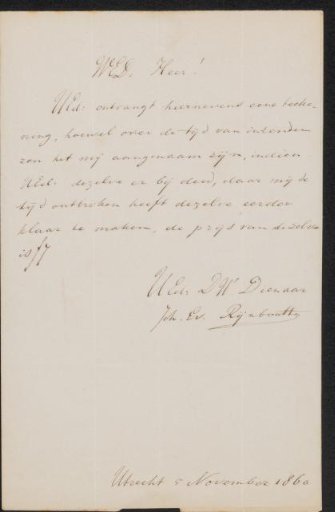 WelEd. Heer!
UEd: ontvangt hiernevens eene teeke-
ning, hoewel over de tijd van inzenden
zou het mij aangenaam zijn, indien
UEd: dezelve er bij deed, daar mij de
tijd ontbroken heeft dezelve eerder
klaar te maken, de prijs van dezelve
is f7
UEd: DW Dienaar
Joh. Ev. Rijnbout
Utrecht 5 November 1860